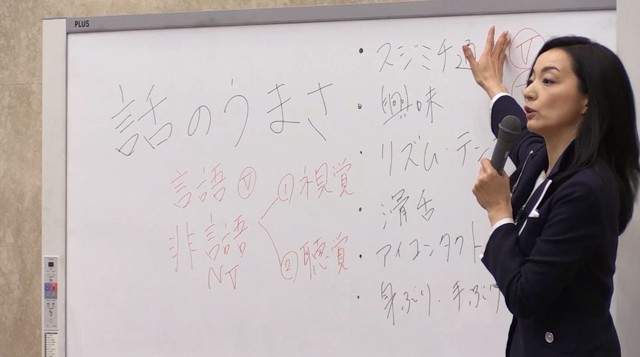 PLUS
話のうまさ
言語 Ⓥ
非言語
NV
①視覚
②聴覚
・スジミチ
Ⓥ
・興味
・リズム・テン
・滑舌
・アイコンタクト
・身ぶり・手ぶり